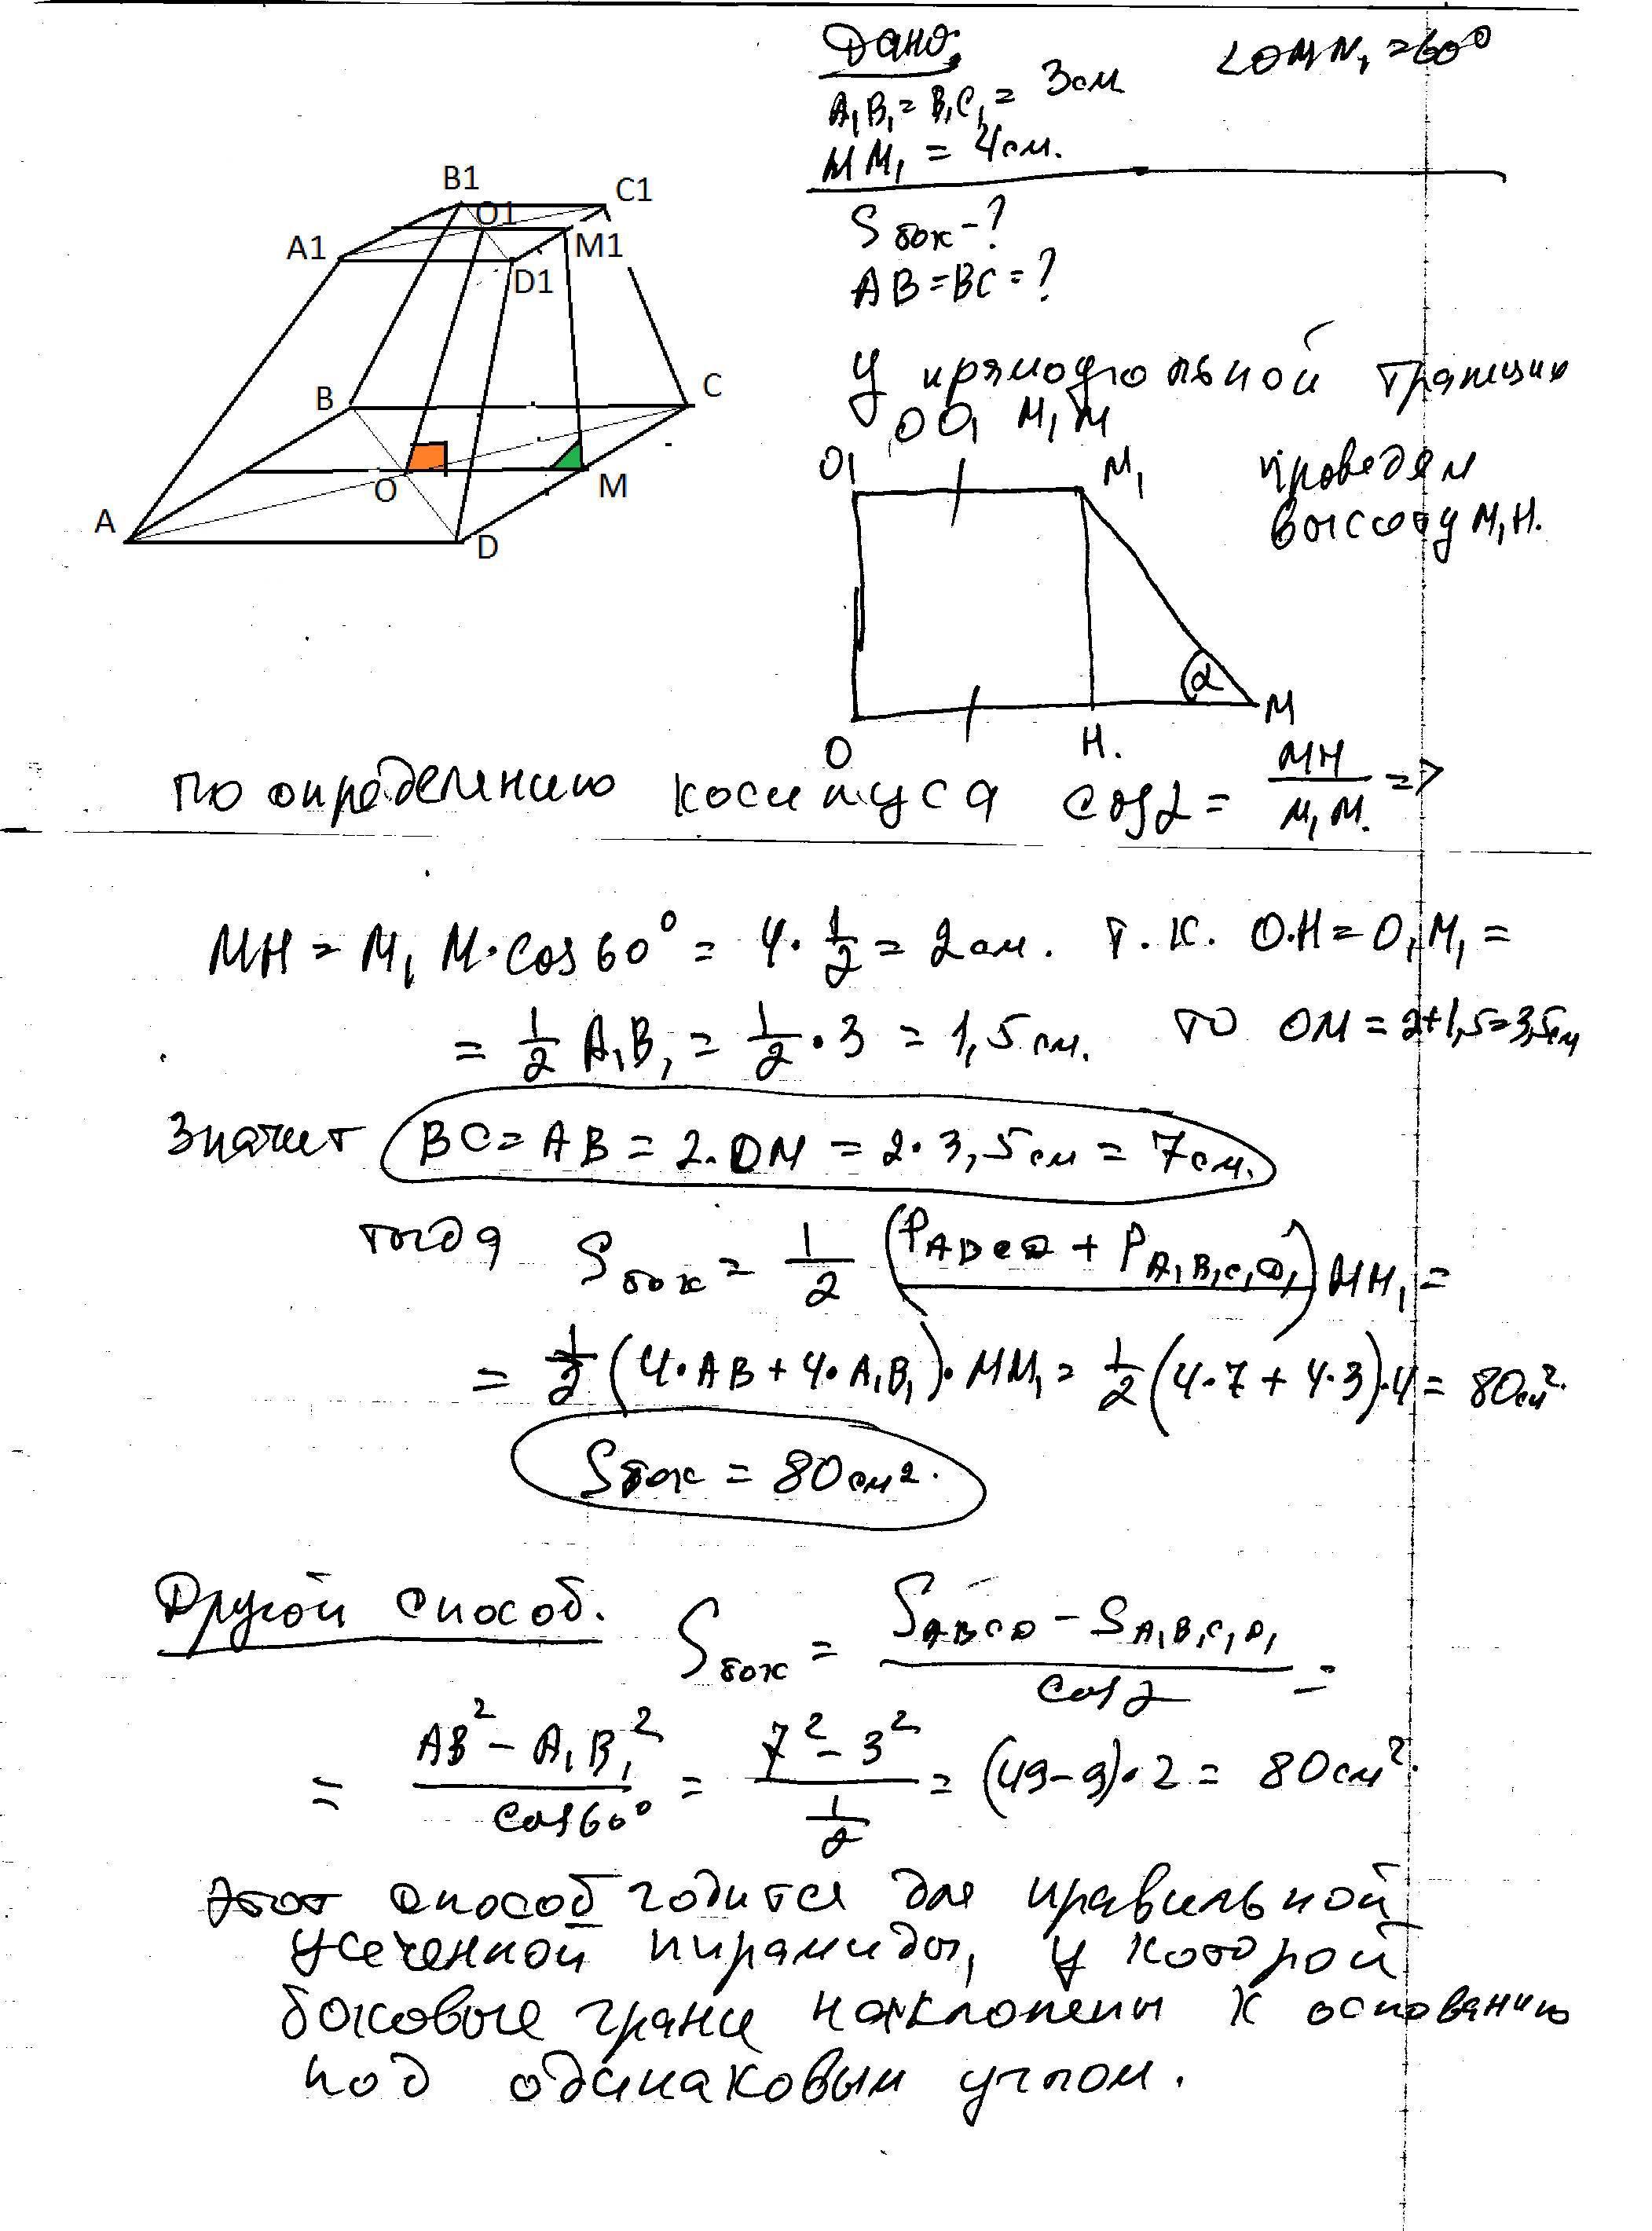 Дано:
∠OMM₁ = 60°
A₁B₁ = B₁C₁ = 3 см
MM₁ = 4 см.
Sбок - ?
AB = BC = ?
B1
C1
O1
A1
M1
D1
B
C
O
M
A
D
У прямоугольной трапеции
OO₁M₁M
проведём
высоту M₁H.
O₁
M₁
α
M
O
H.
по определению косинуса cos α = MH / M₁M. =>
MH = M₁M · cos 60° = 4 · 1/2 = 2 см. т.к. OH = O₁M₁ =
= 1/2 A₁B₁ = 1/2 · 3 = 1,5 см. то OM = 2+1,5=3,5см
Значит BC = AB = 2·OM = 2·3,5см = 7см.
тогда Sбок = 1/2 (P ABCD + P A₁B₁C₁D₁) MM₁ =
= 1/2 (4·AB + 4·A₁B₁)·MM₁ = 1/2 (4·7 + 4·3)·4 = 80см².
Sбок = 80см².
Другой способ. Sбок = (S ABCD − S A₁B₁C₁D₁) / cos α =
= (AB² − A₁B₁²) / cos 60° = (7² − 3²) / (1/2) = (49−9)·2 = 80см².
этот способ годится для правильной
усечённой пирамиды, у которой
боковые грани наклонены к основанию
под одинаковым углом.